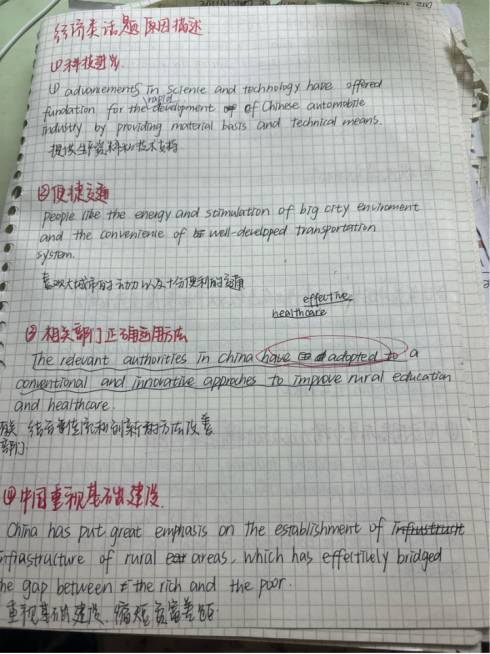 经济类话题原因描述
①科技进步
① advancements in science and technology have offered
rapid
fundation for the development of Chinese automobile
industry by providing material basis and technical means.
提供生产资料和技术支持
②便捷交通
people like the energy and stimulation of big city enviroment
and the convenience of well-developed transportation
system.
喜欢大城市的动力以及十分便利的交通
effective
healthcare
③相关部门正确运用方法
The relevant authorities in china have adopted to a
conventional and innovative approches to improve rural education
and healthcare.
相关 结合传统和创新的方法改善
部门
④中国重视基础建设.
China has put great emphasis on the establishment of
infrastructure of rural areas, which has effectively bridged
the gap between the rich and the poor.
重视基础建设, 缩短贫富差距